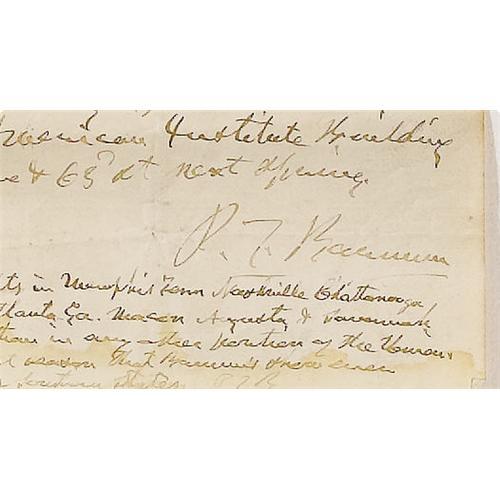 American Institute Building
& 63d St next Spring
P. T. Barnum
in Memphis Tenn Nashville Chattanooga
Atlanta Ga. Macon Augusta & Savannah
in any other portion of the Union
season that Barnum's show ever
Southern States. P.T.B.